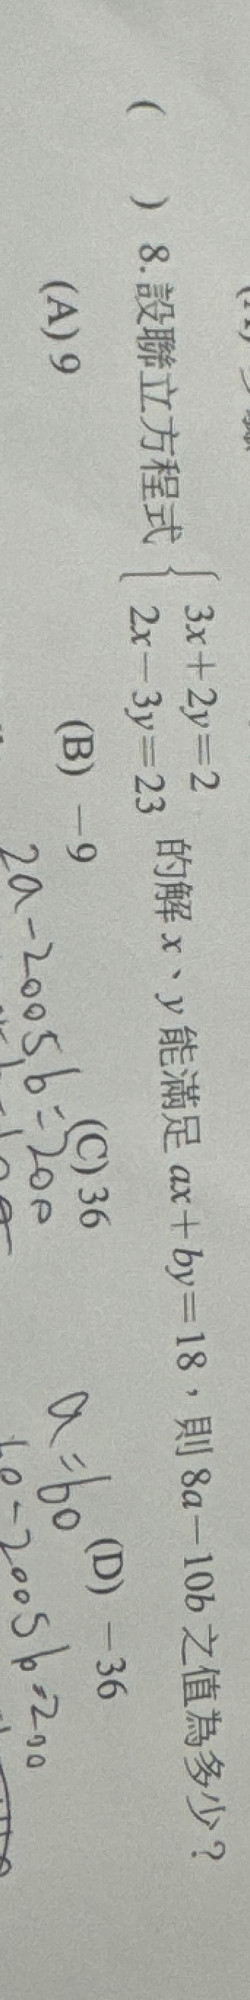 ( ) 8.設聯立方程式 { 3x+2y=2
2x-3y=23 的解 x、y 能滿足 ax+by=18,則 8a-10b 之值為多少?
(A) 9 (B) -9 (C) 36 (D) -36
2a-2005b=200
a=b0
-2005b=200